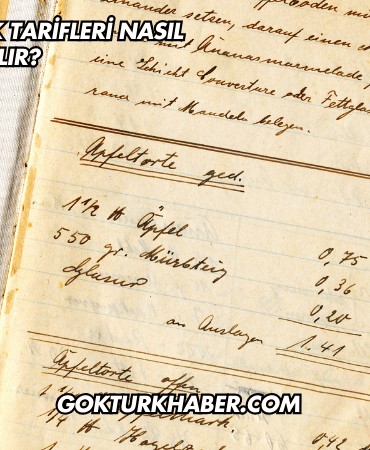 K TARİFLERİ NASIL
LIR?
einander setzen, darauf einen
mit Ananasmarmelade,
eine Schicht Couverture oder Fettglas
rand mit Mandeln belegen.
Apfeltorte ged.
1 1/2 ℔ Äpfel 0,75
550 gr. Mürbteig 0,36
Glasur 0,20
an Auslagen 1.41
Apfeltorte offen
0,42
1/4 ℔ Hagelz
GOKTURKHABER.COM